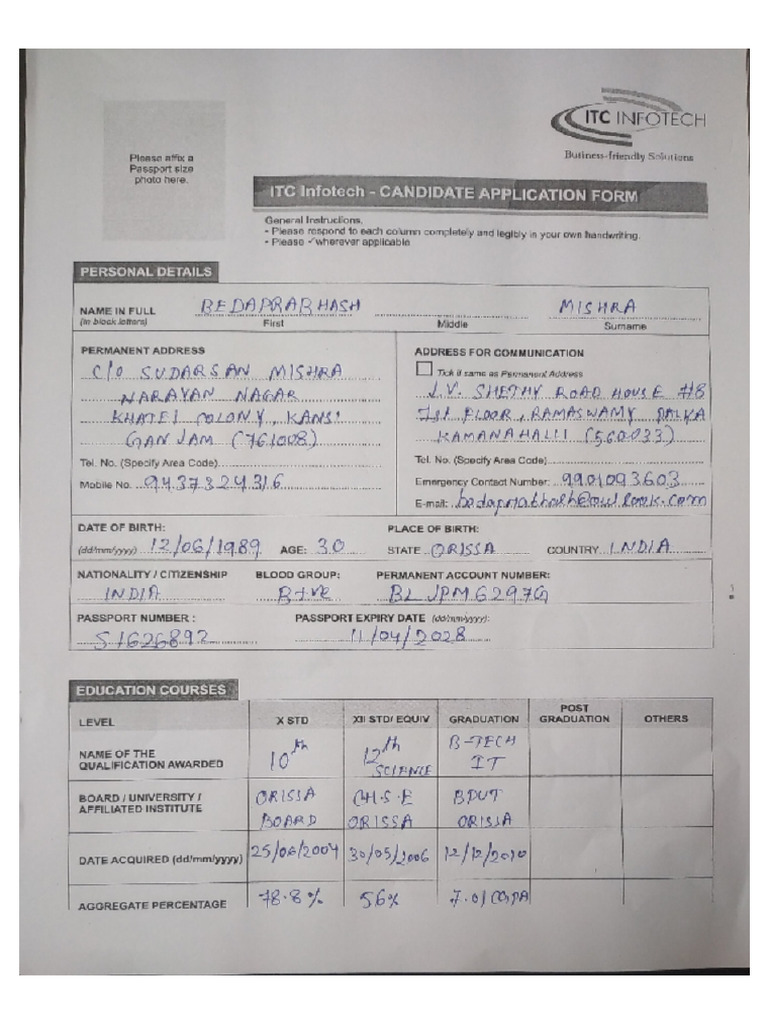 Please affix a
Passport size
photo here.
ITC INFOTECH
Business-friendly Solutions
ITC Infotech - CANDIDATE APPLICATION FORM
General Instructions.
- Please respond to each column completely and legibly in your own handwriting.
- Please ✓wherever applicable
PERSONAL DETAILS
NAME IN FULL BEDAPRABHASH MISHRA
(in block letters) First Middle Surname
PERMANENT ADDRESS
C/o SUDARSAN MISHRA
NARAYAN NAGAR
KHATEI COLONY, KANSI
GANJAM (761008)
Tel. No. (Specify Area Code)
Mobile No. 9437324316
ADDRESS FOR COMMUNICATION
Tick if same as Permanent Address
J.V. SHETHY ROAD HOUSE #8
1st FLOOR, RAMASWAMY PALYA
KAMANAHALLI (560033)
Tel. No. (Specify Area Code)
Emergency Contact Number: 9901093603
E-mail:
DATE OF BIRTH: PLACE OF BIRTH:
(dd/mm/yyyy) 12/06/1989 AGE: 30 STATE ORISSA COUNTRY INDIA
NATIONALITY / CITIZENSHIP BLOOD GROUP: PERMANENT ACCOUNT NUMBER:
INDIA B+ve BLJPM6297G
PASSPORT NUMBER : PASSPORT EXPIRY DATE (dd/mm/yyyy):
S1626892 11/04/2028
EDUCATION COURSES
LEVEL X STD XII STD/ EQUIV GRADUATION POST GRADUATION OTHERS
NAME OF THE QUALIFICATION AWARDED 10th 12th SCIENCE B-TECH IT
BOARD / UNIVERSITY / AFFILIATED INSTITUTE ORISSA BOARD C.H.S.E ORISSA BPUT ORISSA
DATE ACQUIRED (dd/mm/yyyy) 25/06/2004 30/05/2006 12/12/2010
AGGREGATE PERCENTAGE 78.8% 56% 7.01 CGPA